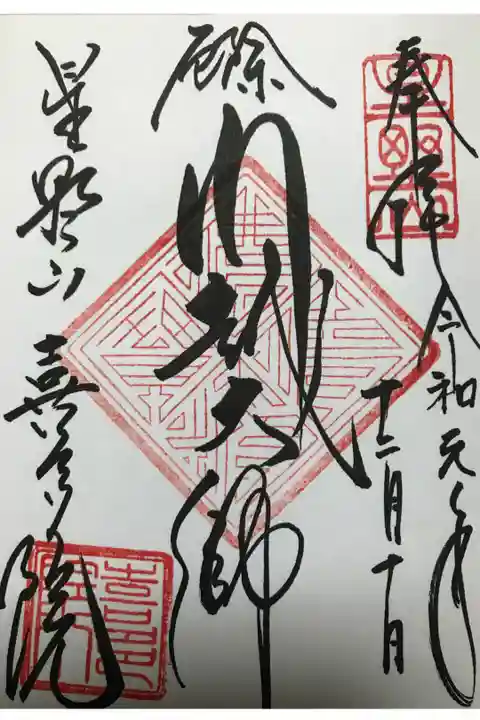 奉拝
令和元年
十二月十日
厄除
川越大師
星野山 喜多院